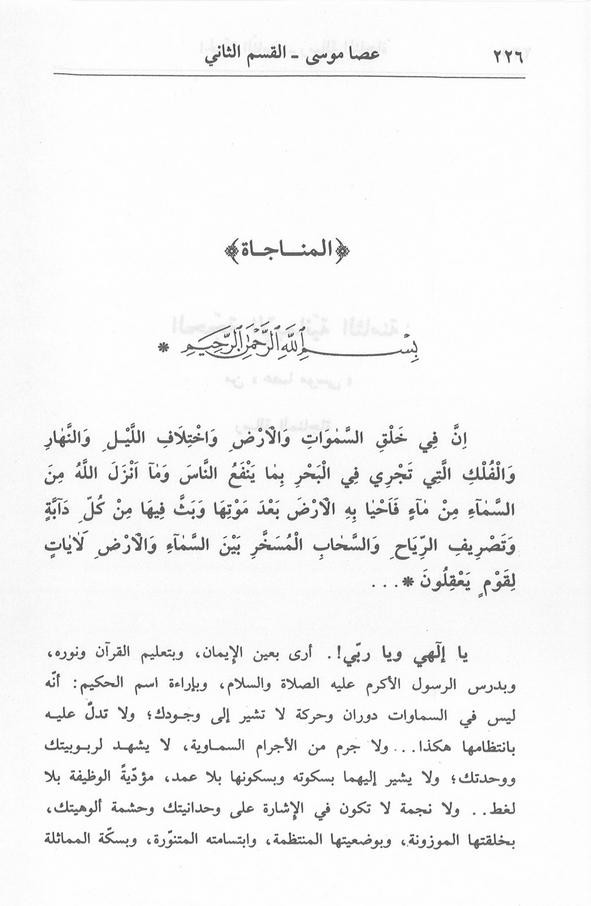 ٢٢٦ عصا موسى - القسم الثاني
﴿المناجاة﴾
بِسْمِ اللّٰهِ الرَّحْمٰنِ الرَّحِيمِ *
اِنَّ فِي خَلْقِ السَّمٰوَاتِ وَالْاَرْضِ وَاخْتِلَافِ اللَّيْلِ وَالنَّهَارِ
وَالْفُلْكِ الَّتِي تَجْرِي فِي الْبَحْرِ بِمَا يَنْفَعُ النَّاسَ وَمَٓا اَنْزَلَ اللّٰهُ مِنَ
السَّمَٓاءِ مِنْ مَٓاءٍ فَاَحْيَا بِهِ الْاَرْضَ بَعْدَ مَوْتِهَا وَبَثَّ فِيهَا مِنْ كُلِّ دَٓابَّةٍ
وَتَصْرِيفِ الرِّيَاحِ وَالسَّحَابِ الْمُسَخَّرِ بَيْنَ السَّمَٓاءِ وَالْاَرْضِ لَاٰيَاتٍ
لِقَوْمٍ يَعْقِلُونَ * ...
يا إلٰهي ويا ربّي!. أرى بعين الإيمان، وبتعليم القرآن ونوره،
وبدرس الرسول الأكرم عليه الصلاة والسلام، وبإراءة اسم الحكيم: أنّه
ليس في السماوات دوران وحركة لا تشير إلى وجودك؛ ولا تدلّ عليه
بانتظامها هكذا... ولا جرم من الأجرام السماوية، لا يشهد لربوبيتك
ووحدتك؛ ولا يشير إليهما بسكوته وبسكونها بلا عمد، مؤدّيةً الوظيفة بلا
لغط.. ولا نجمة لا تكون في الإشارة على وحدانيتك وحشمة ألوهيتك،
بخلقتها الموزونة، وبوضعيتها المنتظمة، وابتسامته المتنوّرة، وبسكّة المماثلة